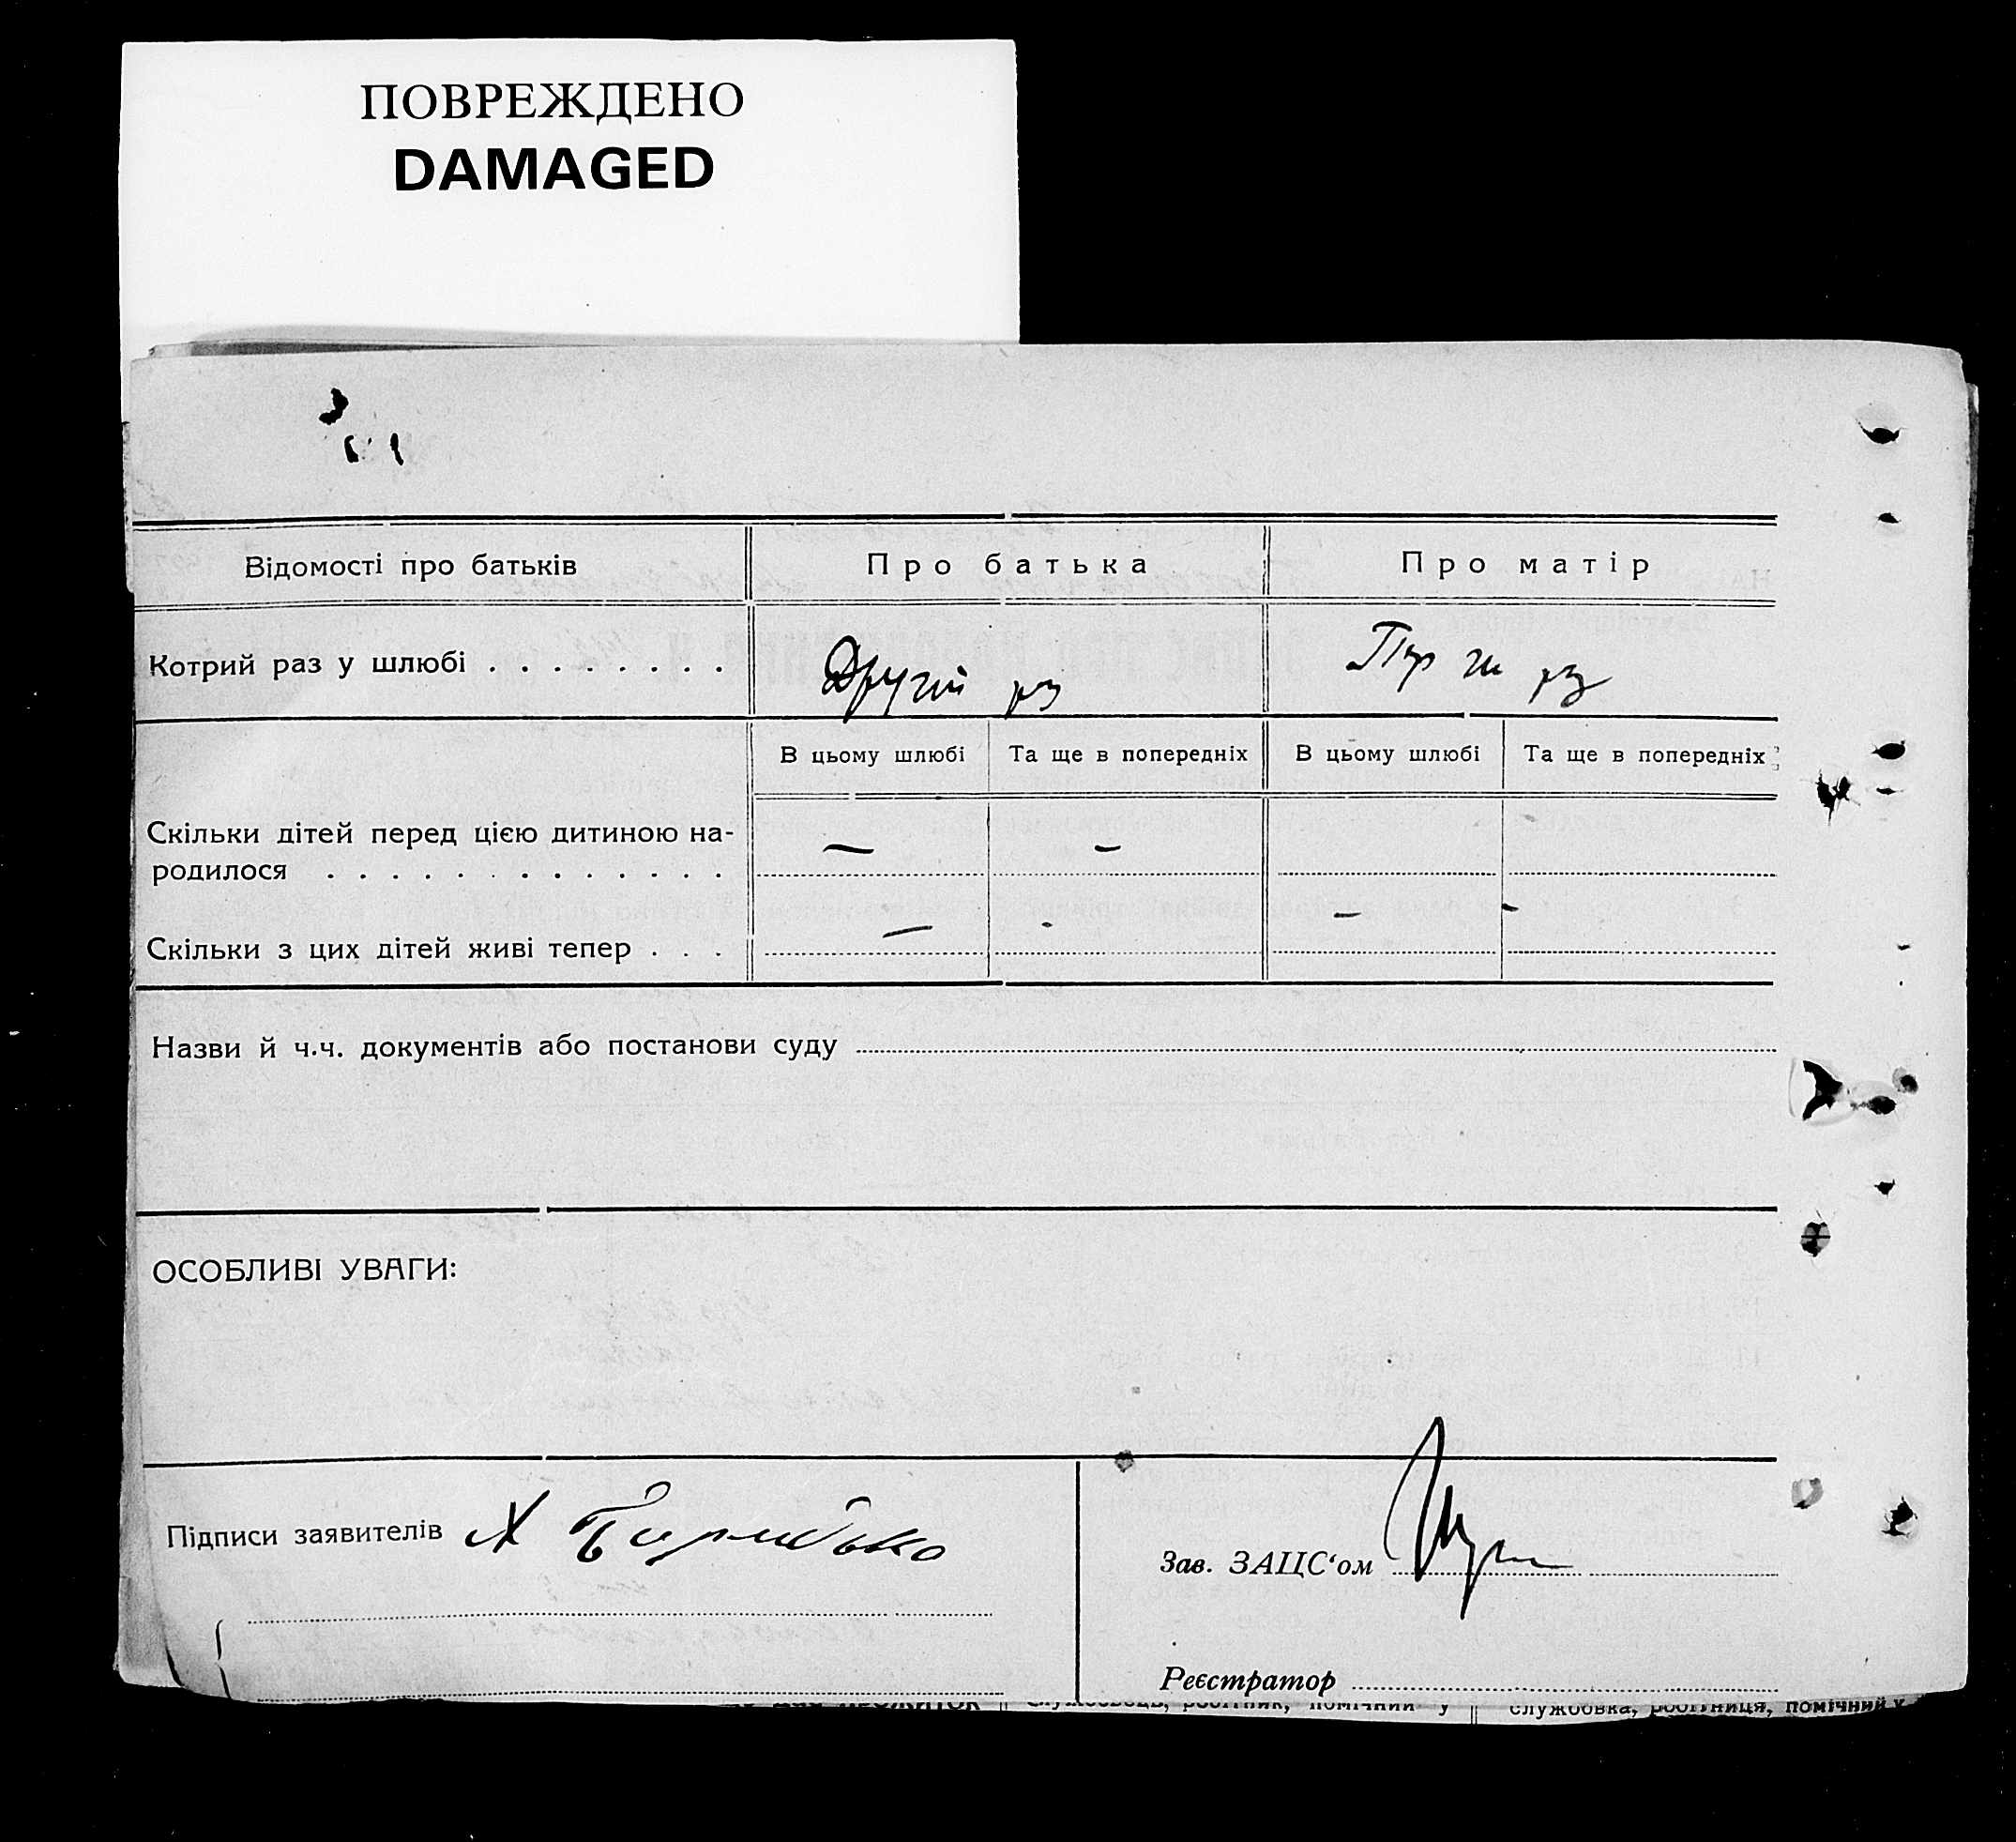 ПОВРЕЖДЕНО
DAMAGED
Відомості про батьків
Про батька
Про матір
Котрий раз у шлюбі . . . . . . . .
Другий раз
В цьому шлюбі
Та ще в попередніх
В цьому шлюбі
Та ще в попередніх
Скільки дітей перед цією дитиною на-
родилося . . . . . . . . . . . . .
— –
Скільки з цих дітей живі тепер . . .
— - – -
Назви й ч.ч. документів або постанови суду
ОСОБЛИВІ УВАГИ:
Підписи заявителів
Зав. ЗАЦС‘ом
Реєстратор
службовка, робітниця, помічний у